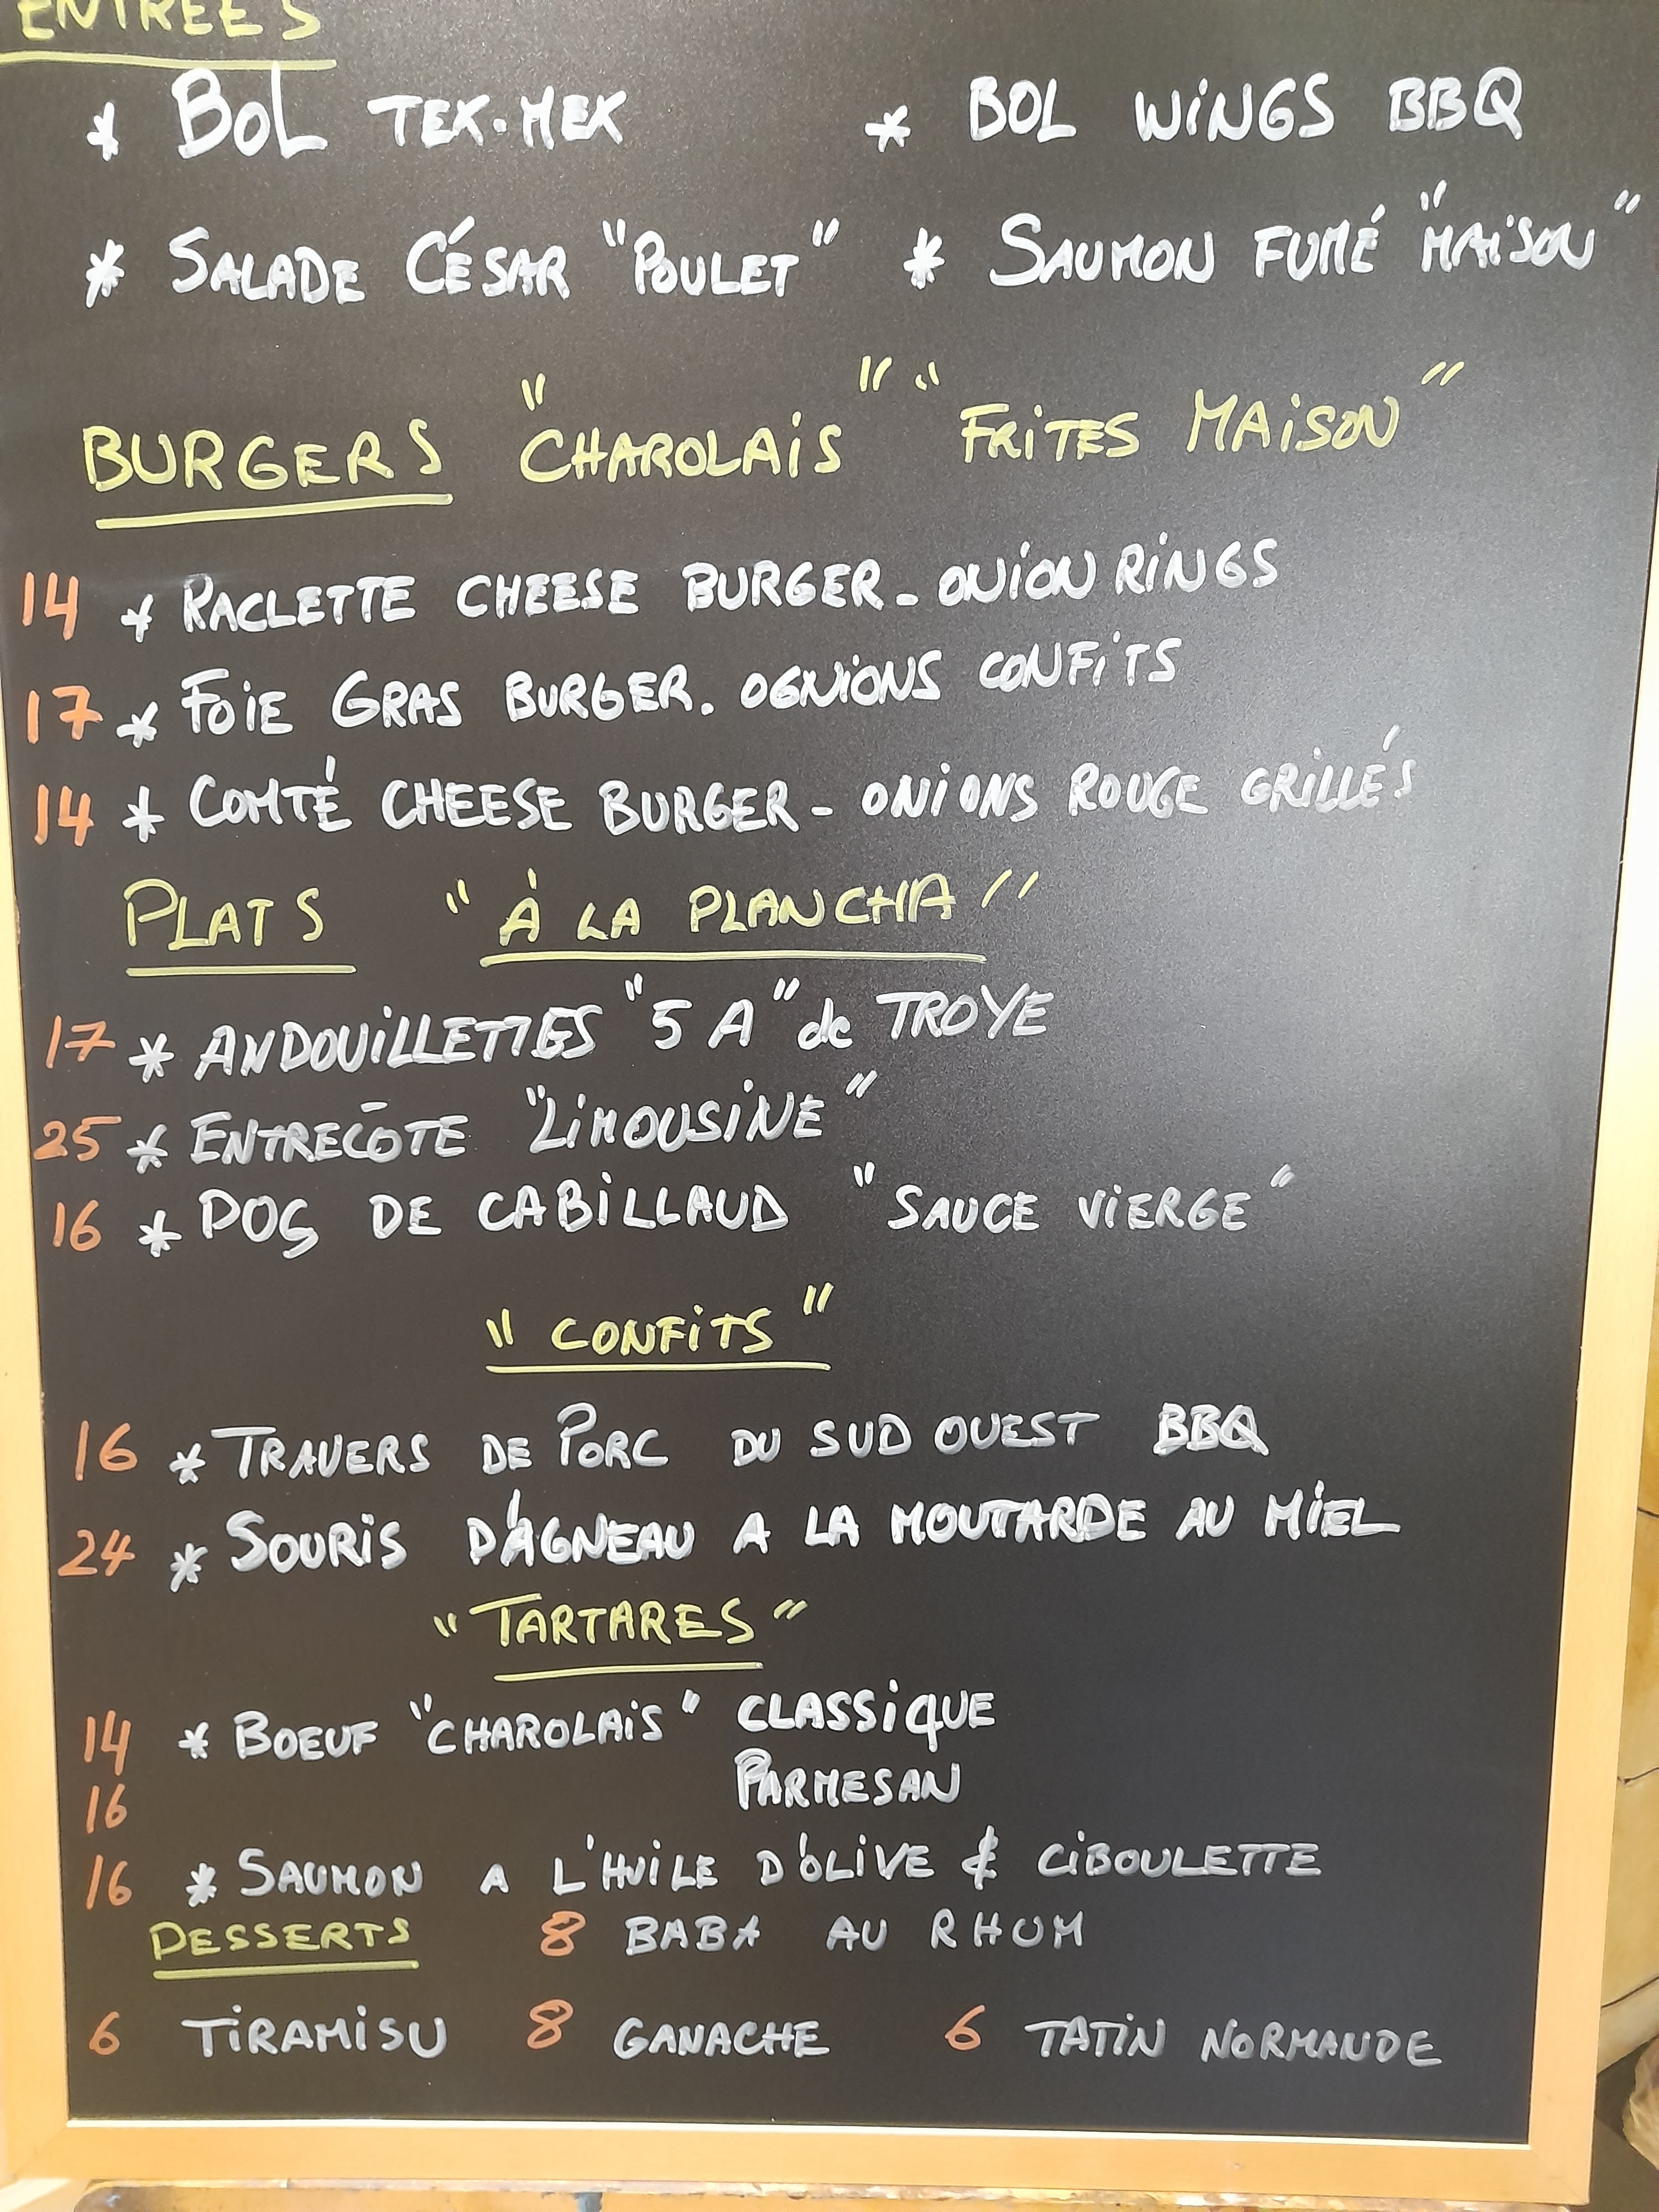 ENTREES
* BOL TEX.MEX * BOL WINGS BBQ
* SALADE CÉSAR "POULET" * SAUMON FUMÉ "MAISON"
BURGERS "CHAROLAIS" "FRITES MAISON"
14 * RACLETTE CHEESE BURGER - ONION RINGS
17 * FOIE GRAS BURGER. OGNIONS CONFITS
14 * COMTÉ CHEESE BURGER - ONIONS ROUGE GRILLÉS
PLATS "À LA PLANCHA"
17 * ANDOUILLETTES "5 A" de TROYE
25 * ENTRECÔTE "LIMOUSINE"
16 * DOS DE CABILLAUD "SAUCE VIERGE"
"CONFITS"
16 * TRAVERS DE PORC DU SUD OUEST BBQ
24 * SOURIS D'AGNEAU A LA MOUTARDE AU MIEL
"TARTARES"
14 * BOEUF "CHAROLAIS" CLASSIQUE
16 PARMESAN
16 * SAUMON A L'HUILE D'OLIVE & CIBOULETTE
DESSERTS 8 BABA AU RHUM
6 TIRAMISU 8 GANACHE 6 TATIN NORMANDE